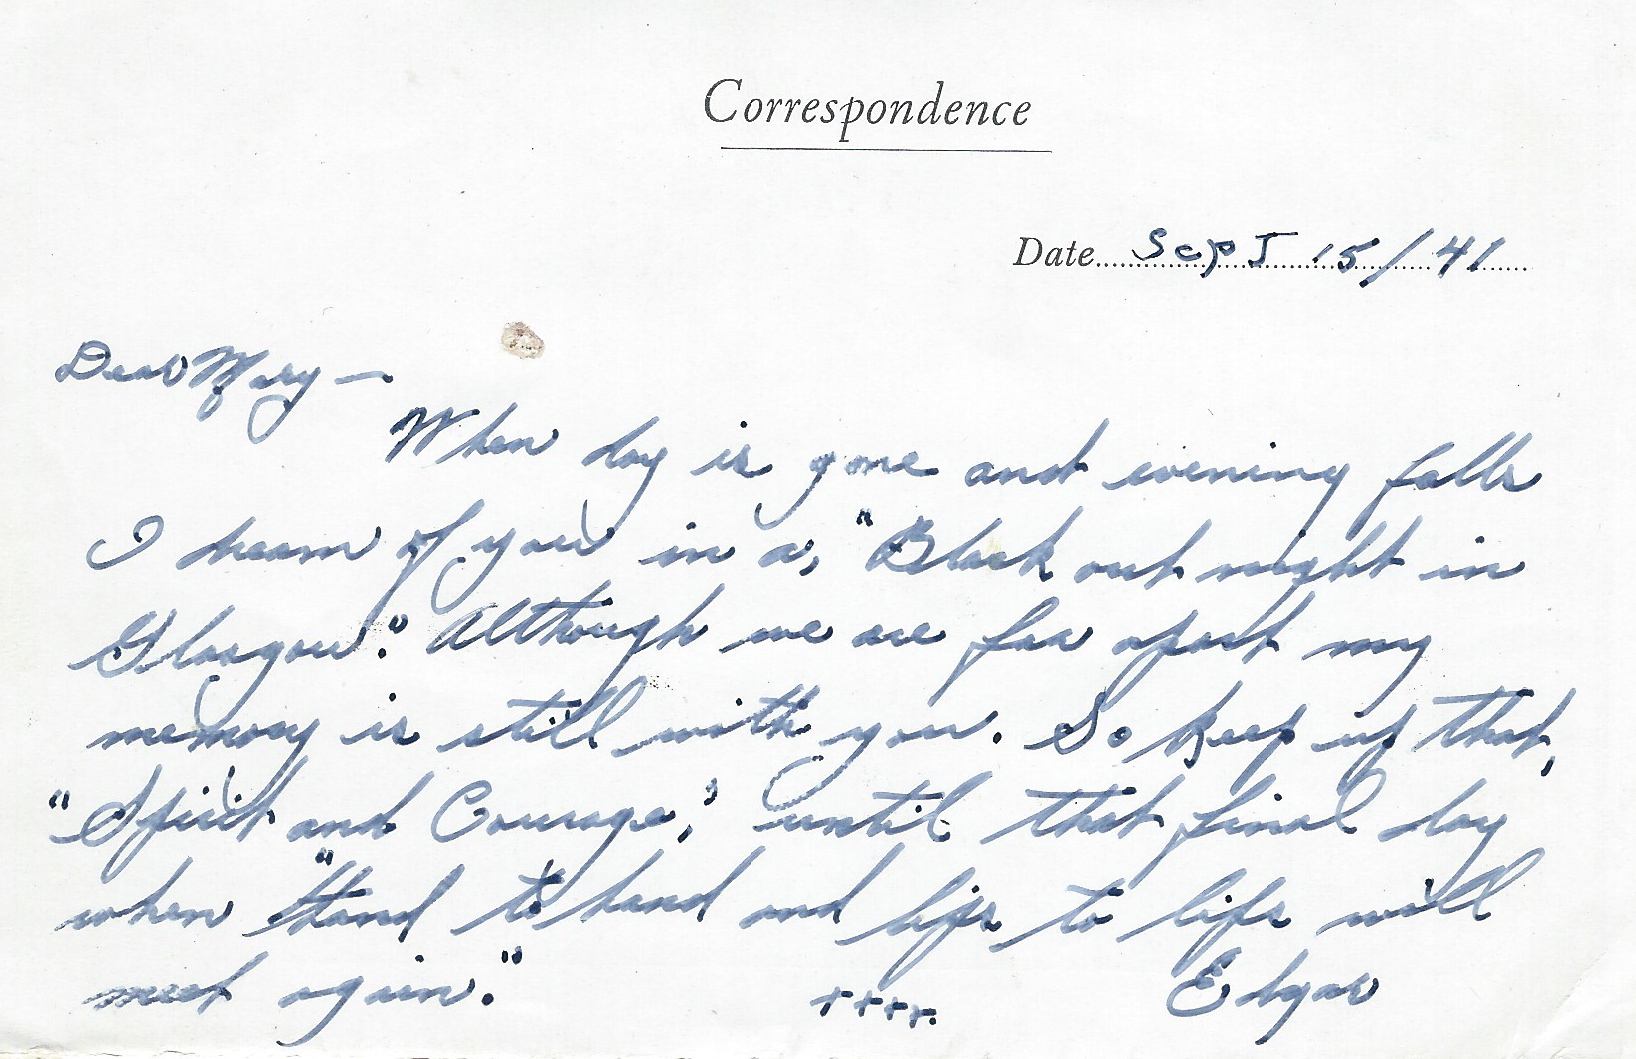 Correspondence
Date Sept 15/41
Dear Mary —
When day is gone and evening falls
I dream of you in a, "Black out night in
Glasgow." Although we are far apart my
memory is still with you. So keep up that,
"Spirit and Courage," until that final day
when "Hand to hand and lips to lips will
meet again."
++++. Edgar